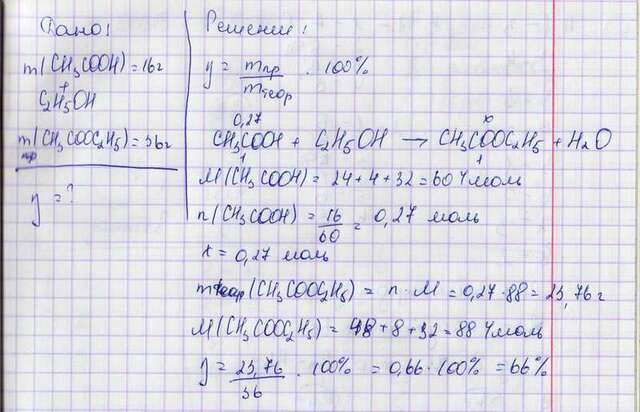 Дано:
m(CH₃COOH) = 16г
+
C₂H₅OH
m(CH₃COOC₂H₅) = 36г
пр
y = ?
Решение:
y = mпр / mтеор · 100%
0,27 x
CH₃COOH + C₂H₅OH → CH₃COOC₂H₅ + H₂O
1 1
M(CH₃COOH) = 24 + 4 + 32 = 60 г/моль
n(CH₃COOH) = 16/60 = 0,27 моль
x = 0,27 моль
mтеор(CH₃COOC₂H₅) = n · M = 0,27 · 88 = 23,76 г
M(CH₃COOC₂H₅) = 48 + 8 + 32 = 88 г/моль
y = 23,76/36 · 100% = 0,66 · 100% = 66%